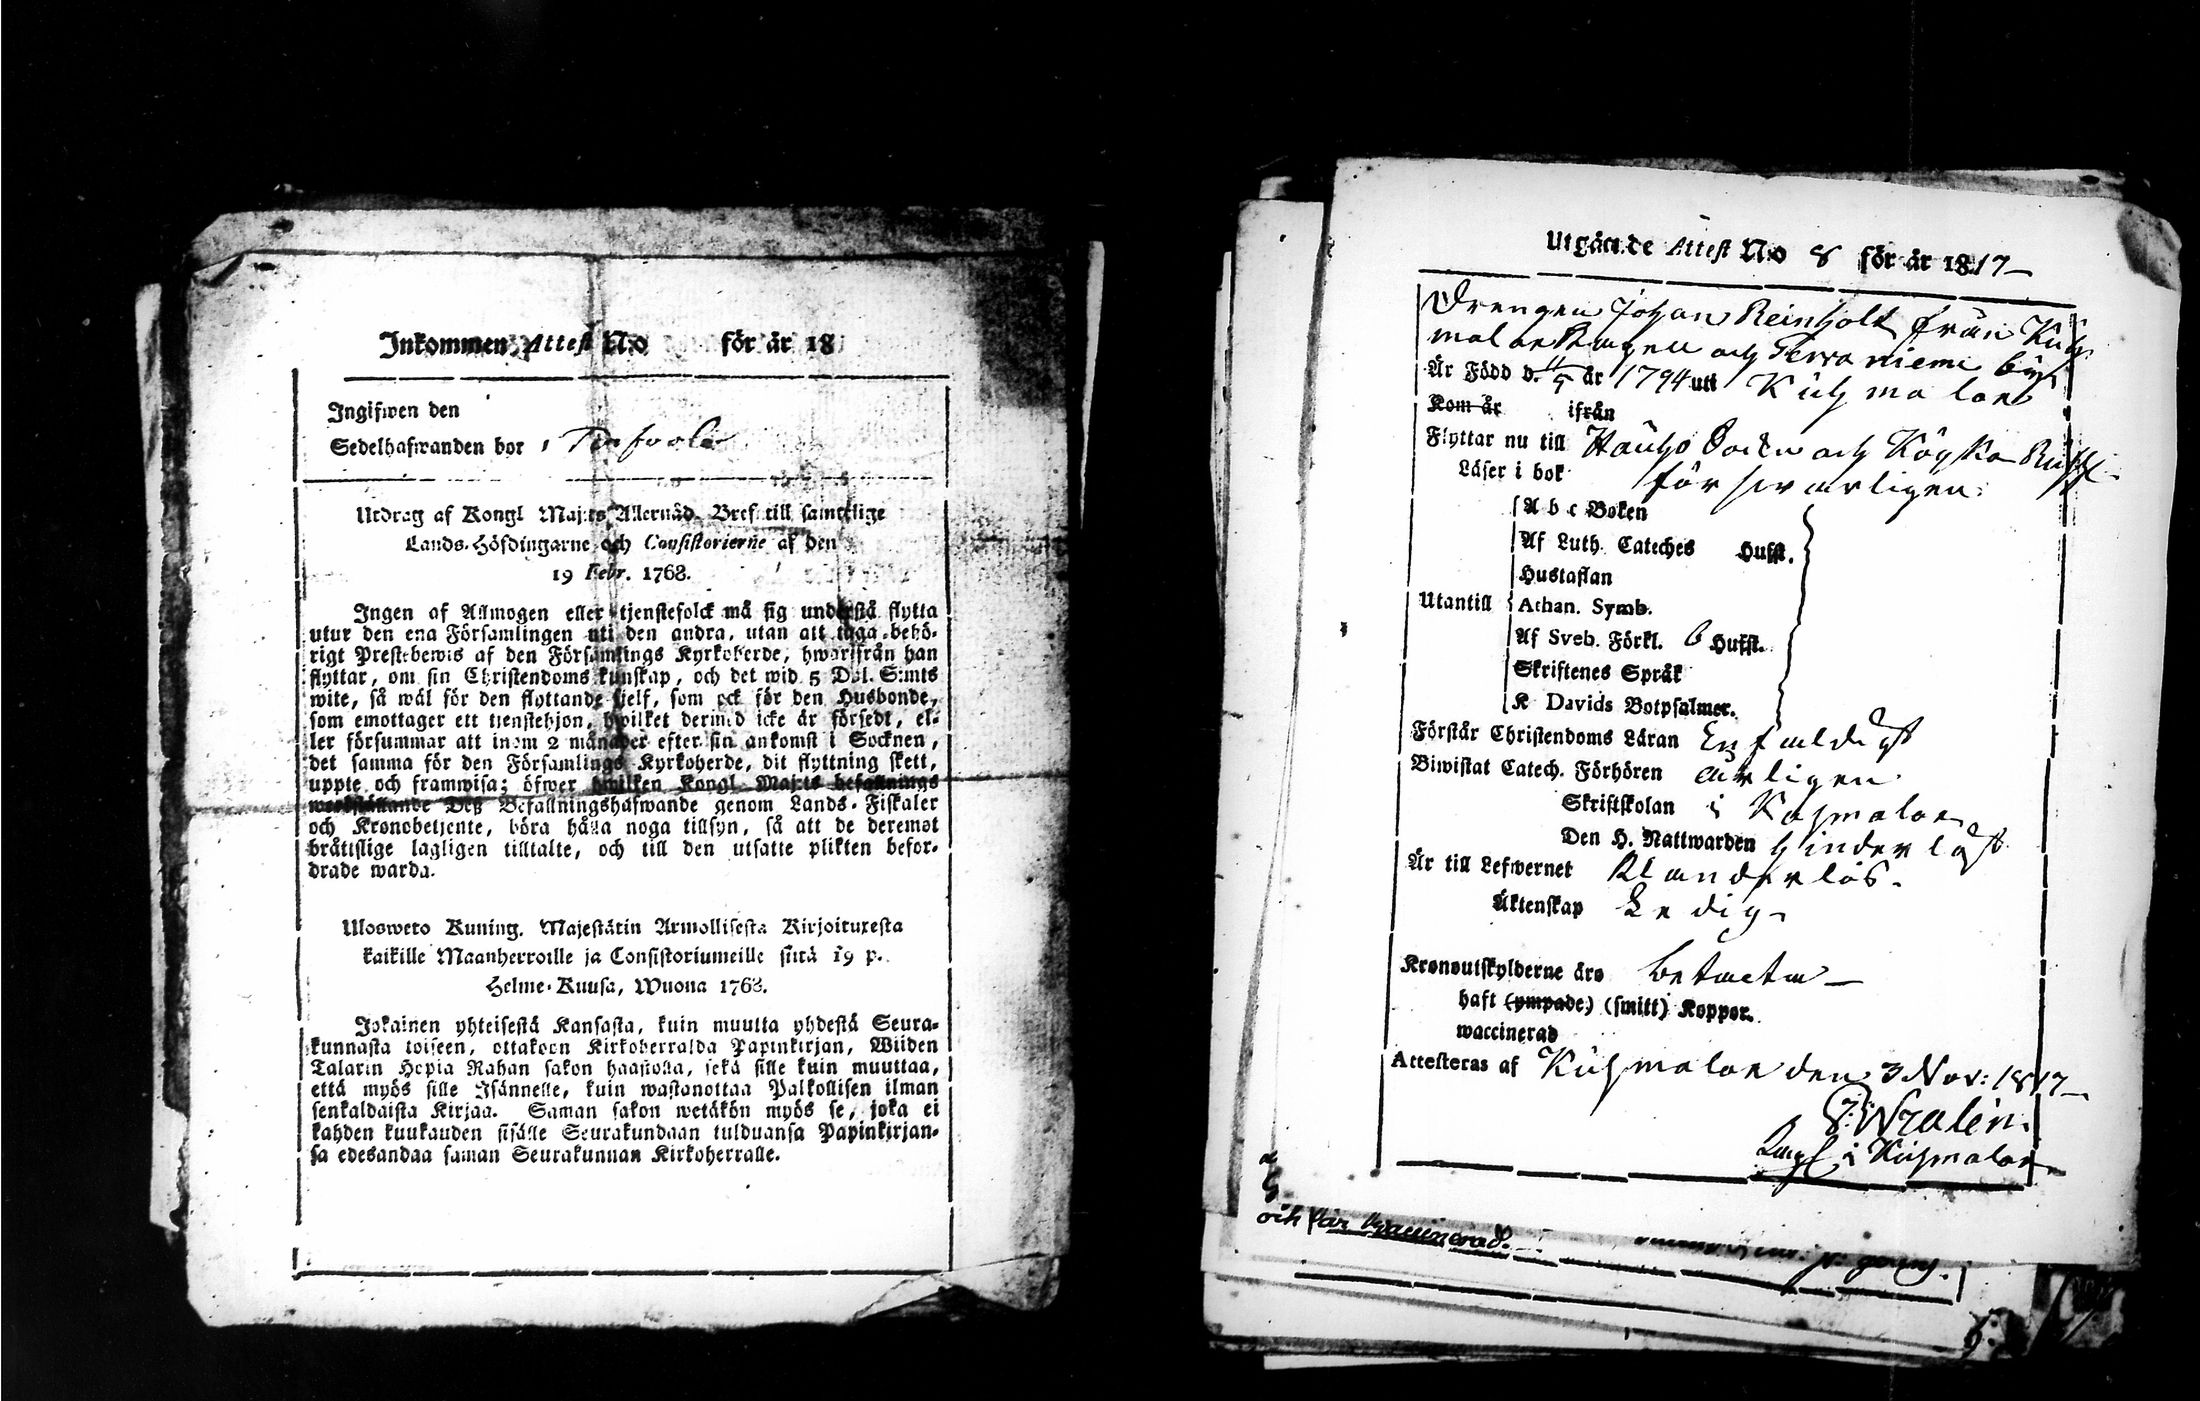 Inkommen Attest No för år 18
Ingifwen den
Sedelhafwanden bor i
Utdrag af Kongl Maj:ts Allernåd. Bref till samtelige
Lands-Höfdingarne och Consistorierne af den
19 Febr. 1768.
Ingen af Allmogen eller tjenstefolck må sig understå flytta
utur den ena Församlingen uti den andra, utan att taga behö-
rigt Prestebewis af den Församlings Kyrkoherde, hwarifrån han
flyttar, om sin Christendoms kunskap, och det wid 5 Dal. S:mts
wite, så wäl för den flyttande sjelf, som ock för den Husbonde,
som emottager ett tjenstehjon, hwilket dermed icke är försedt, el-
ler försummar att inom 2 månader efter sin ankomst i Socknen,
det samma för den Församlings Kyrkoherde, dit flyttning skett,
uppte och framwisa; öfwer hwilken Kongl. Maj:ts befallnings
werkställande Deß Befallningshafwande genom Lands-Fiskaler
och Kronobetjente, böra hålla noga tillsyn, så att de deremot
bråttslige lagligen tilltalte, och till den utsatte plikten befor-
drade warda.
Ulosweto Kuning. Majestätin Armollisesta Kirjoituxesta
kaikille Maanherroille ja Consistoriumeille siitä 19 p.
Helme-Kuusa, Wuona 1768.
Jokainen yhteisestä Kansasta, kuin muutta yhdestä Seura-
kunnasta toiseen, ottakoon Kirkoherralda Papinkirjan, Wiiden
Talarin Hopia Rahan sakon haastolla, sekä sille kuin muuttaa,
että myös sille Isännelle, kuin wastanottaa Palkollisen ilman
senkaldaista Kirjaa. Saman sakon wetäkön myös se, joka ei
kahden kuukauden sisälle Seurakundaan tulduansa Papinkirjan-
sa edesandaa saman Seurakunnan Kirkoherralle.
Utgående Attest No 8 för år 1817
Drengen Johan Reinholt från Kuh
malax Kapell och Terraniemi by
Är Född d. 11/5 år 1794 uti Kuhmalax
Kom år ifrån
Flyttar nu till Hauho Socken och
Läser i bok försvarligen
A b c Boken
Af Luth. Cateches Hufst.
Hustaflan
Utantill Athan. Symb.
Af Sveb. Förkl. 6 Hufst.
Skriftenes Språk
K Davids Botpsalmer.
Förstår Christendoms Läran Enfaldigt
Biwistat Catech. Förhören årligen
Skriftskolan i Kuhmalax
Den H. Nattwarden hinderlöst
Är till Lefwernet Klanderlös.
Äktenskap Ledig
Kronoutskylderne äro betaeta
haft (ympade) (smitt) Koppor.
waccinerad
Attesteras af Kuhmalax den 3 Nov: 1817
Wralén.
i Kuhmalax
och har Vaccinerad.